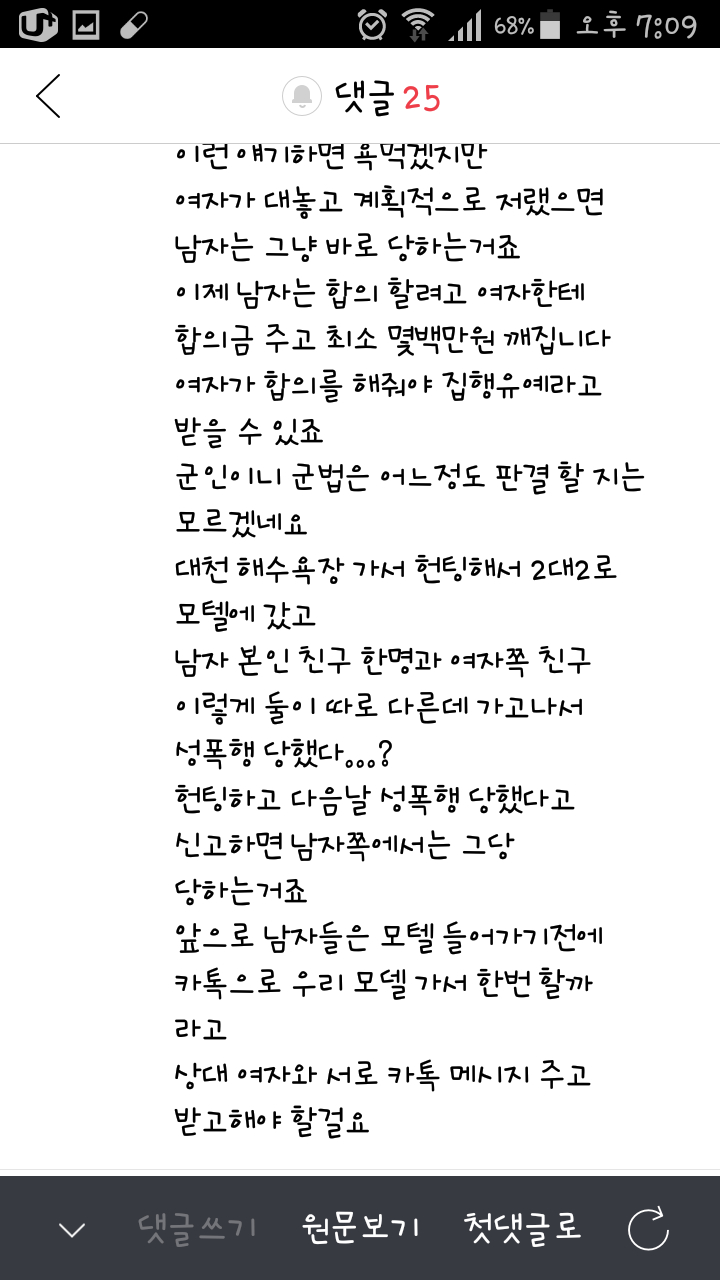 U+ 68% 오후 7:09
댓글 25
이런 얘기하면 욕먹겠지만
여자가 대놓고 계획적으로 저랬으면
남자는 그냥 바로 당하는거죠
이제 남자는 합의 할려고 여자한테
합의금 주고 최소 몇백만원 깨집니다
여자가 합의를 해줘야 집행유예라고
받을 수 있죠
군인이니 군법은 어느정도 판결 할 지는
모르겠네요
대천 해수욕장 가서 헌팅해서 2대2로
모텔에 갔고
남자 본인 친구 한명과 여자쪽 친구
이렇게 둘이 따로 다른데 가고나서
성폭행 당했다...?
헌팅하고 다음날 성폭행 당했다고
신고하면 남자쪽에서는 그당
당하는거죠
앞으로 남자들은 모텔 들어가기전에
카톡으로 우리 모델 가서 한번 할까
라고
상대 여자와 서로 카톡 메시지 주고
받고해야 할걸요
댓글쓰기 원문보기 첫댓글로